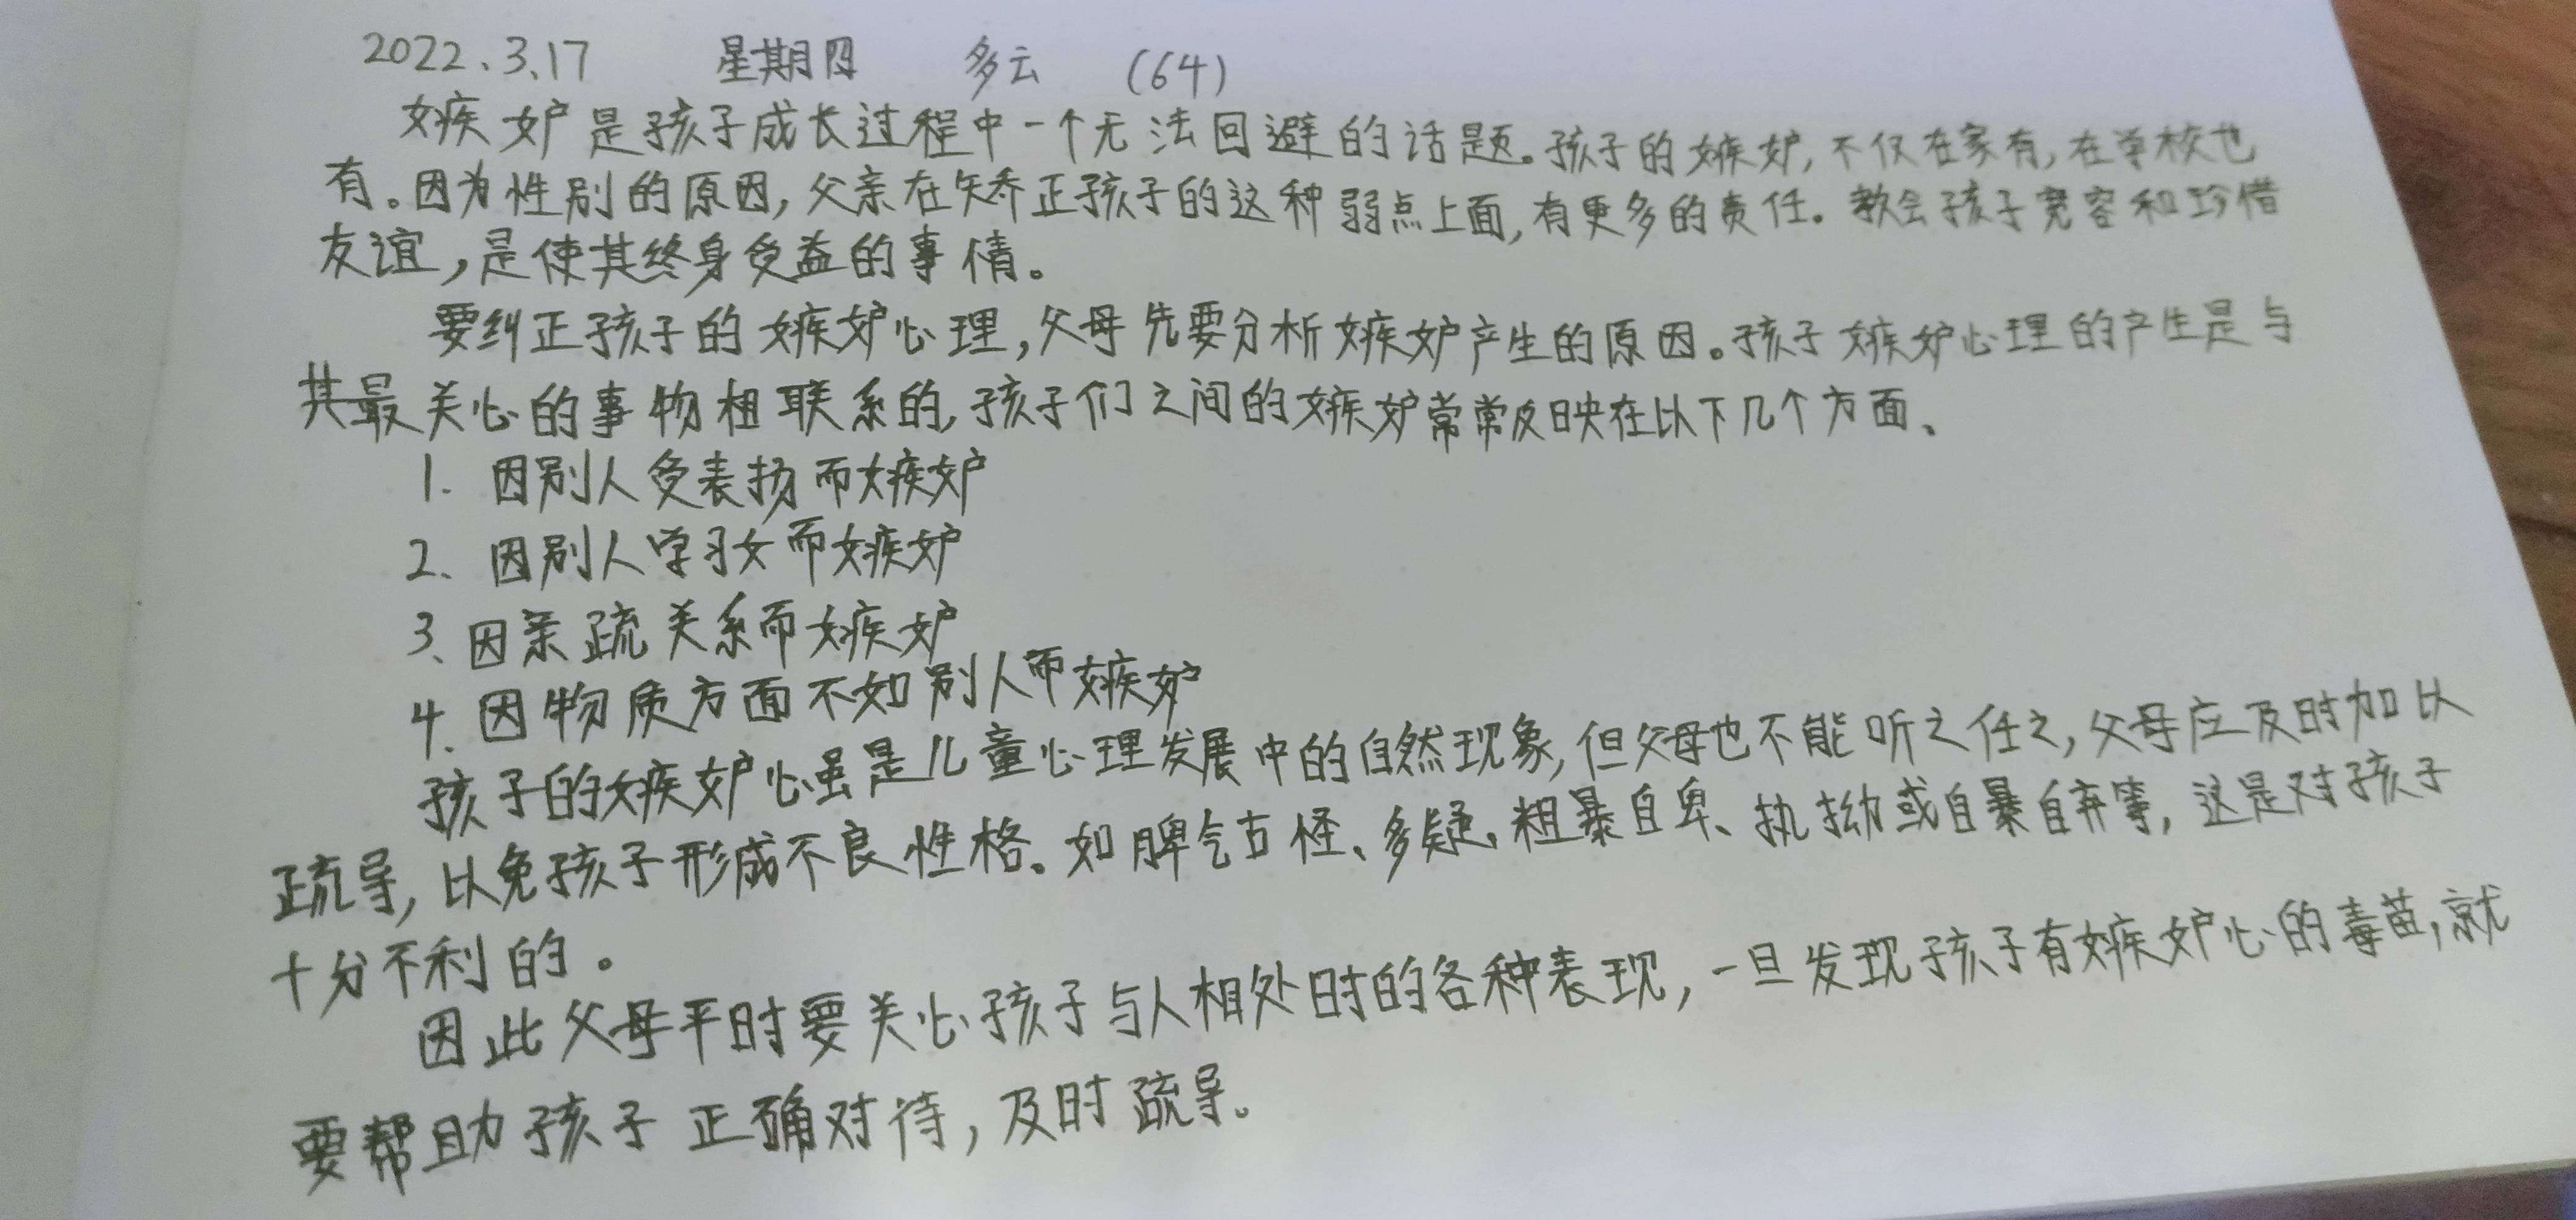 2022、3、17 星期四 多云 (64)
嫉妒是孩子成长过程中一个无法回避的话题。孩子的嫉妒,不仅在家有,在学校也
有。因为性别的原因,父亲在矫正孩子的这种弱点上面,有更多的责任。教会孩子宽容和珍惜
友谊,是使其终身受益的事情。
要纠正孩子的嫉妒心理,父母先要分析嫉妒产生的原因。孩子嫉妒心理的产生是与
其最关心的事物相联系的,孩子们之间的嫉妒常常反映在以下几个方面、
1. 因别人受表扬而嫉妒
2、因别人学习女而嫉妒
3、因亲疏关系而嫉妒
4、因物质方面不如别人而嫉妒
孩子的嫉妒心虽是儿童心理发展中的自然现象,但父母也不能听之任之,父母应及时加以
疏导,以免孩子形成不良性格。如脾气古怪、多疑、粗暴自卑、执拗或自暴自弃等,这是对孩子
十分不利的。
因此父母平时要关心孩子与人相处时的各种表现,一旦发现孩子有嫉妒心的毒苗,就
要帮助孩子正确对待,及时疏导。